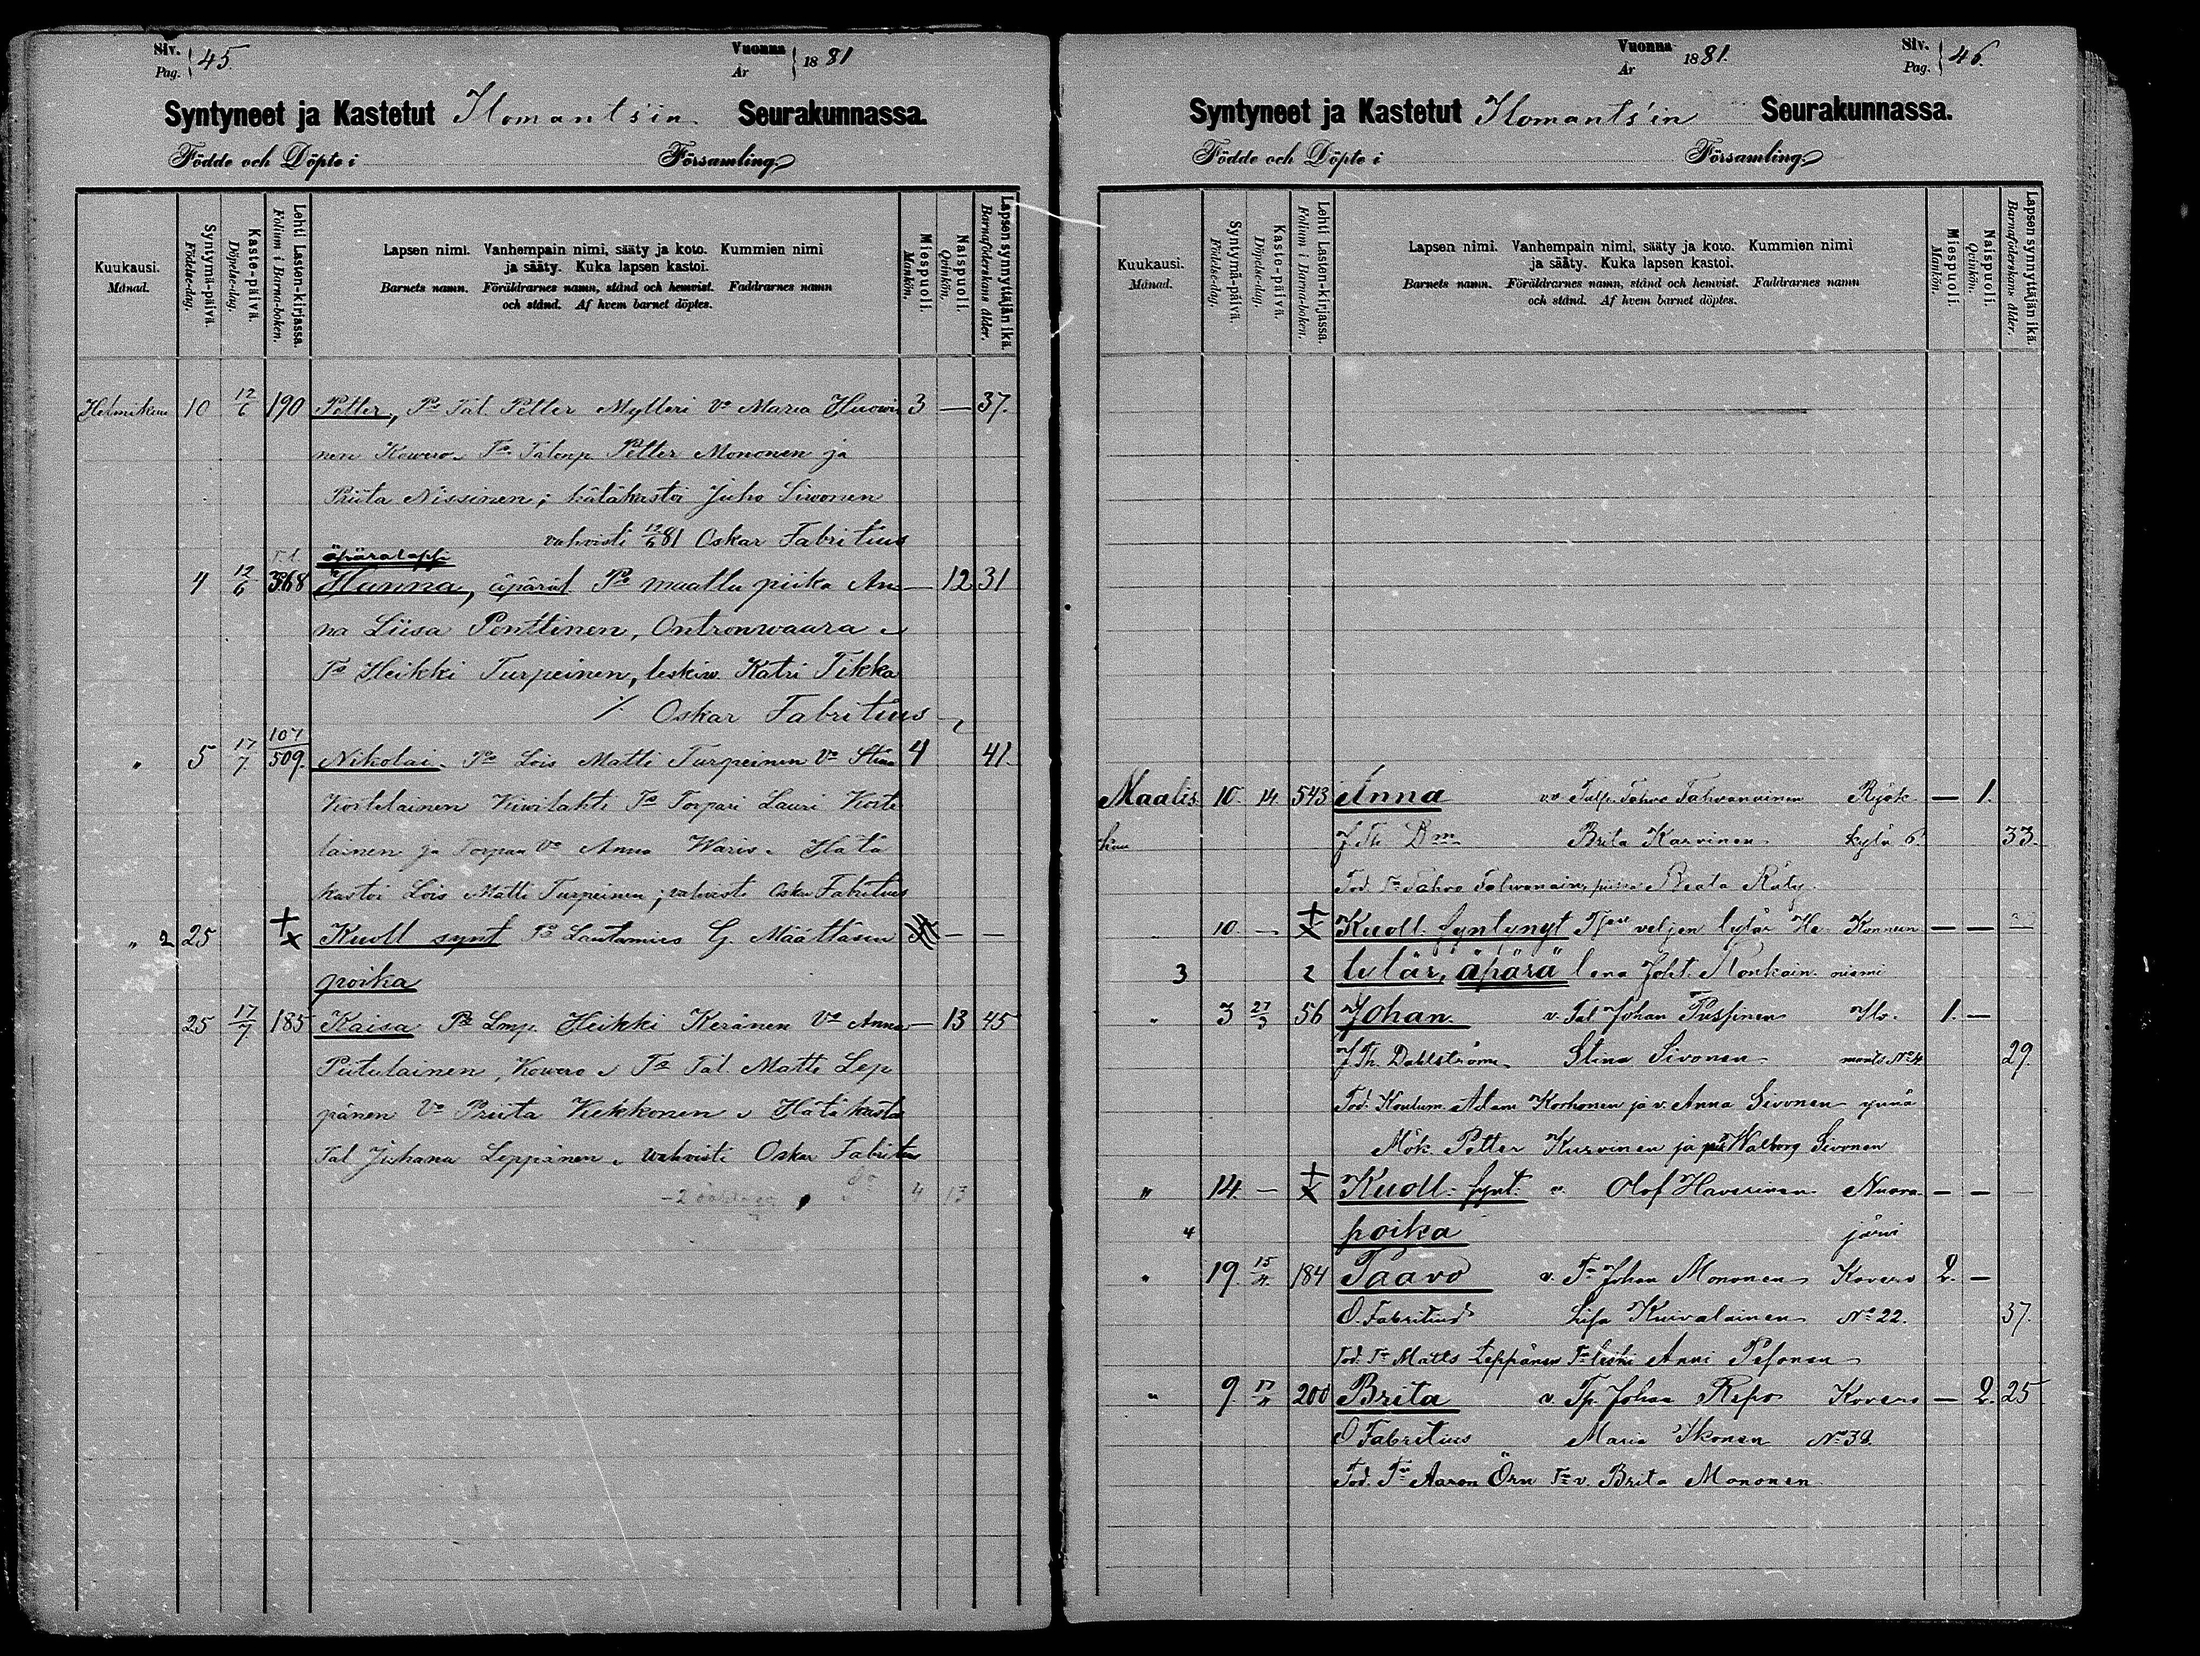 Siv. Pag. 45.
Vuonna År 1881
Syntyneet ja Kastetut Ilomants'in Seurakunnassa.
Födde och Döpte i Församling.
Kuukausi. Månad.
Syntymä-päivä. Födelse-dag.
Kaste-päivä. Döpelse-dag.
Lehti Lasten-kirjassa. Folium i Barna-boken.
Lapsen nimi. Vanhempain nimi, sääty ja koto. Kummien nimi
ja sääty. Kuka lapsen kastoi.
Barnets namn. Föräldrarnes namn, stånd och hemvist. Faddrarnes namn
och stånd. Af hvem barnet döptes.
Miespuoli. Mankön.
Naispuoli. Qvinkön.
Lapsen synnyttäjän ikä. Barnaföderskans ålder.
Helmikuu 10 12/6 190 Petter, Po Tal. Petter Mylleri Vo Maria Huowi 3 — 37.
nen Kowero. To Talonp Petter Mononen ja
Priita Nissinen; hätäkastoi Juho Siwonen
vahvisti 12/6 81 Oskar Fabritius
äpärälapsi
4 12/6 368 Hanna, äpärät Po maatlu piika An — 12 31
na Liisa Penttinen, Ontronwaara
To Heikki Turpeinen, leskiw. Katri Tikka
Oskar Fabritius
107
" 5 17/7 509. Nikolai. Po Lois Matti Turpeinen Vo Stina 4 41.
Kostelainen Kiwilahti To Torpari Lauri Koste
lainen ja Torpan Vo Anna Waris. Hätä
kastoi Lois Matti Turpeinen; vahvisti Oskar Fabritius
" 2 25 Kuoll synt Po Lautamies G. Määttäsen — —
poika
25 17/7 185 Kaisa Po Lmp. Heikki Keränen Vo Anna — 13 45
Piitulainen, Kowero. To Tal. Matti Lep
pänen Vo Priita Kekkonen. Hätäkasto
Tal Juhana Leppänen. wahvisti Oskar Fabritius
4 13
Vuonna År 1881.
Siv. Pag. 46.
Syntyneet ja Kastetut Ilomants'in Seurakunnassa.
Födde och Döpte i Församling.
Kuukausi. Månad.
Syntymä-päivä. Födelse-dag.
Kasto-päivä. Döpelse-dag.
Lehti Lasten-kirjassa. Folium i Barna-boken.
Lapsen nimi. Vanhempain nimi, sääty ja koto. Kummien nimi
ja sääty. Kuka lapsen kastoi.
Barnets namn. Föräldrarnes namn, stånd och hemvist. Faddrarnes namn
och stånd. Af hvem barnet döptes.
Miespuoli. Mankön.
Naispuoli. Qvinkön.
Lapsen synnyttäjän ikä. Barnaföderskans ålder.
Maalis 10. 14 543 Anna Tahvo Tahvanainen — 1.
kuu J Th. Dm Brita Karvinen kylä 6. 33.
Tod. Tn Tahvo Tahvanain, piika Beata Räty.
" 10. — Kuoll. syntynyt veljen tytär — —
3 2 tytär, äpärä
" 3 27/3 56 Johan v. Tal Johan Pussinen Ilo- 1. —
J Th. Dahlström Stina Sivonen mants No 4 29.
Tod. Adam Korhonen ja v. Anna Sivonen ynnä
Mök. Petter Kurvinen ja Walborg Sivonen
" 14. — Kuoll. synt. v. Olof Haverinen Nuora- — —
4 poika järvi
" 19. 15/4 184 Paavo v. Tn Johan Mononen Kovero 2. —
O. Fabritius Lisa Kuivalainen No 22. 37.
Tod. Tn Matts Leppänen Tn leski Anni Pesonen
" 9. 17/4 200 Brita v. Tp. Johan Repo Kovero — 2. 25
O Fabritius Maria Ikonen No 32.
Tod. Tn Aaron Örn Tn v. Brita Mononen